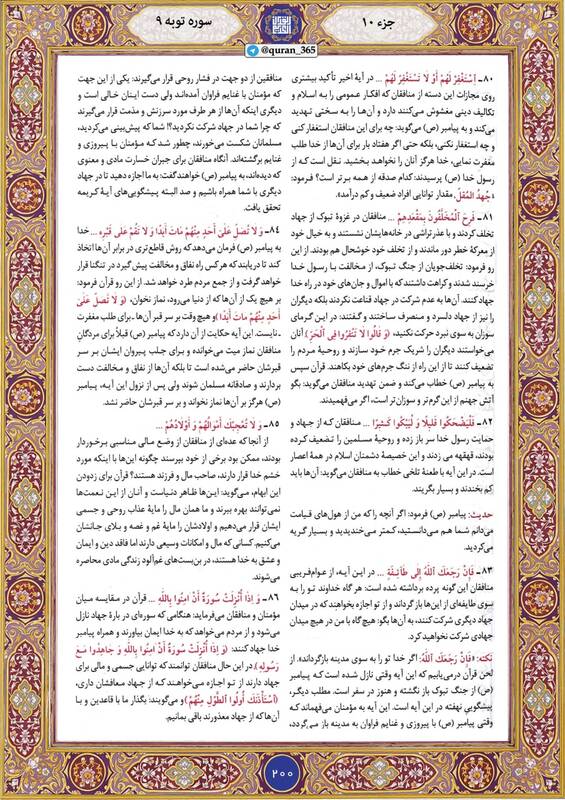 جزء ۱۰
سوره توبه ۹
@quran_365
۸۰- اِسْتَغْفِرْ لَهُمْ أَوْ لا تَسْتَغْفِرْ لَهُمْ ... در آیهٔ اخیر تأکید بیشتری
روی مجازات این دسته از منافقان که افکار عمومی را به اسلام و
تکالیف دینی مغشوش می‌کنند دارد و آن‌ها را به سختی تهدید
می‌کند و به پیامبر (ص) می‌گوید: چه برای این منافقان استغفار کنی
و چه استغفار نکنی، حتی اگر هفتاد بار برای آن‌ها از خدا طلب
مغفرت نمایی، خدا هرگز آنان را نخواهد بخشید. نقل است که از
رسول خدا (ص) پرسیدند: کدام صدقه از همه برتر است؟ فرمود:
«جُهدُ المُقلّ، مقدار توانایی افراد ضعیف و کم درآمد».
۸۱- فَرِحَ الْمُخَلَّفُونَ بِمَقْعَدِهِمْ ... منافقان در غزوهٔ تبوک از جهاد
تخلف کردند و با عذرتراشی در خانه‌هایشان نشستند و به خیال خود
از معرکهٔ خطر دور ماندند و از تخلف خود خوشحال هم بودند. از این
رو فرمود: تخلف‌جویان از جنگ تبوک، از مخالفت با رسول خدا
خرسند شدند و کراهت داشتند که با اموال و جان‌های خود در راه خدا
جهاد کنند. آن‌ها به عدم شرکت در جهاد قناعت نکردند بلکه دیگران
را نیز از جهاد دلسرد و منصرف ساختند و گفتند: در این گرمای
سوزان به سوی نبرد حرکت نکنید، (وَ قالُوا لا تَنْفِرُوا فِی الْحَرِّ) آنان
می‌خواستند دیگران را شریک جرم خود سازند و روحیهٔ مردم را
تضعیف کنند تا از این راه از ننگ جرم‌های خود بکاهند. قرآن سپس
به پیامبر (ص) خطاب می‌کند و ضمن تهدید منافقان می‌گوید: بگو
آتش جهنم از این گرم‌تر و سوزان‌تر است، اگر می‌فهمیدند.
۸۲- فَلْیَضْحَکُوا قَلیلًا وَ لْیَبْکُوا کَثیرًا ... منافقان که از جهاد و
حمایت رسول خدا سر باز زده و روحیهٔ مسلمین را تضعیف کرده
بودند، قهقهه می زدند و این خصیصهٔ دشمنان اسلام در همهٔ اعصار
است. در این آیه با طعنهٔ تلخی خطاب به منافقان می‌گوید: آن‌ها باید
کم بخندند و بسیار بگریند.
حدیث: پیامبر (ص) فرمود: اگر آنچه را که من از هول‌های قیامت
می‌دانم شما هم می‌دانستید، کمتر می‌خندیدید و بسیار گریه
می‌کردید.
۸۳- فَاِنْ رَجَعَكَ اللّٰهُ إِلی طَائِفَةٍ ... در این آیه، از عوام‌فریبی
منافقان این گونه پرده برداشته شده است: هر گاه خداوند تو را به
سوی طایفه‌ای از این‌ها بازگرداند و از تو اجازه بخواهند که در میدان
جهاد دیگری شرکت کنند، به آن‌ها بگو: هیچ‌گاه با من در هیچ میدان
جهادی شرکت نخواهید کرد.
نکته: «فَاِنْ رَجَعَكَ اللّٰهُ: اگر خدا تو را به سوی مدینه بازگرداند». از
لحن قرآن درمی‌یابیم که این آیه وقتی نازل شده است که پیامبر
(ص) از جنگ تبوک باز نگشته و هنوز در سفر است. مطلب دیگر،
پیشگوییِ نهفته در این آیه است. این آیه به مؤمنان می‌فهماند که
وقتی پیامبر (ص) با پیروزی و غنایم فراوان به مدینه باز می‌گردد،
منافقین از دو جهت در فشار روحی قرار می‌گیرند: یکی از این جهت
که مؤمنان با غنایم فراوان آمده‌اند ولی دست اینان خالی است و
دیگری اینکه آن‌ها از هر طرف مورد سرزنش و مذمت قرار می‌گیرند
که چرا شما در جهاد شرکت نکردید؟! شما که پیش‌بینی می‌کردید،
مسلمانان شکست می‌خورند، چطور شد که مؤمنان با پیروزی و
غنایم برگشته‌اند. آنگاه منافقان برای جبران خسارت مادی و معنوی
که دیده‌اند، به پیامبر (ص) خواهند گفت: به ما اجازه دهید تا در جهاد
دیگری با شما همراه باشیم و صد البته پیشگویی‌های آیهٔ کریمه
تحقق یافت.
۸۴- وَ لا تُصَلِّ عَلٰی أَحَدٍ مِنْهُمْ ماتَ أَبَدًا وَ لا تَقُمْ عَلٰی قَبْرِهِ ... خدا
به پیامبر (ص) فرمان می‌دهد که روش قاطع‌تری در برابر آن‌ها اتخاذ
کند تا دریابند که هرکس راه نفاق و مخالفت پیش گیرد در تنگنا قرار
خواهد گرفت و از جمع مردم طرد خواهد شد. از این رو قرآن فرمود:
بر هیچ یک از آن‌ها که از دنیا می‌رود، نماز نخوان، (وَ لا تُصَلِّ عَلٰی
أَحَدٍ مِنْهُمْ ماتَ أَبَدًا) و هیچ وقت بر سر قبر آن‌ها ـ برای طلب مغفرت
ـ نایست. این آیه حکایت از آن دارد که پیامبر (ص) قبلاً برای مردگانِ
منافقان نماز میت می‌خوانده و برای جلب پیروان ایشان بر سر
قبرشان حاضر می‌شده است تا بلکه آن‌ها از نفاق و مخالفت دست
بردارند و صادقانه مسلمان شوند ولی پس از نزول این آیه، پیامبر
(ص) هرگز بر آن‌ها نماز نخواند و بر سر قبرشان حاضر نشد.
۸۵- وَ لا تُعْجِبْكَ أَمْوالُهُمْ وَ أَوْلادُهُمْ ...
از آنجا که عده‌ای از منافقان از وضع مالی مناسبی برخوردار
بودند، ممکن بود برخی از خود بپرسند چگونه این‌ها با اینکه مورد
خشم خدا قرار دارند، صاحب مال و فرزند هستند؟ قرآن برای زدودن
این ابهام، می‌گوید: این‌ها ظاهر دنیاست و آنان از این نعمت‌ها
نمی‌توانند بهره ببرند و ما همان مال را مایهٔ عذاب روحی و جسمی
ایشان قرار می‌دهیم و اولادشان را مایهٔ غم و غصه و بلای جانشان
می‌کنیم. کسانی که مال و امکانات وسیعی دارند اما فاقد دین و ایمان
و عشق به خدا هستند، در بن‌بست‌های غم‌آلود زندگی مادی محاصره
می‌شوند.
۸۶- وَ اِذا أُنْزِلَتْ سُورَةٌ أَنْ امِنُوا بِاللّٰهِ ... قرآن در مقایسه میان
مؤمنان و منافقان می‌فرماید: هنگامی که سوره‌ای در بارهٔ جهاد نازل
می‌شود و از مردم می‌خواهد که به خدا ایمان بیاورند و همراه پیامبر
خدا جهاد کنند، (وَ اِذا أُنْزِلَتْ سُورَةٌ أَنْ امِنُوا بِاللّٰهِ وَ جاهِدُوا مَعَ
رَسُولِهِ) در این حال منافقان توانمند که توانایی جسمی و مالی برای
جهاد دارند از تو اجازه می‌خواهند که از جهاد معافشان داری،
(اسْتَأْذَنَكَ أُولُوا الطَّوْلِ مِنْهُمْ) و می‌گویند: بگذار ما با قاعدین و با
آن‌ها که از جهاد معذورند باقی بمانیم.
۲۰۰